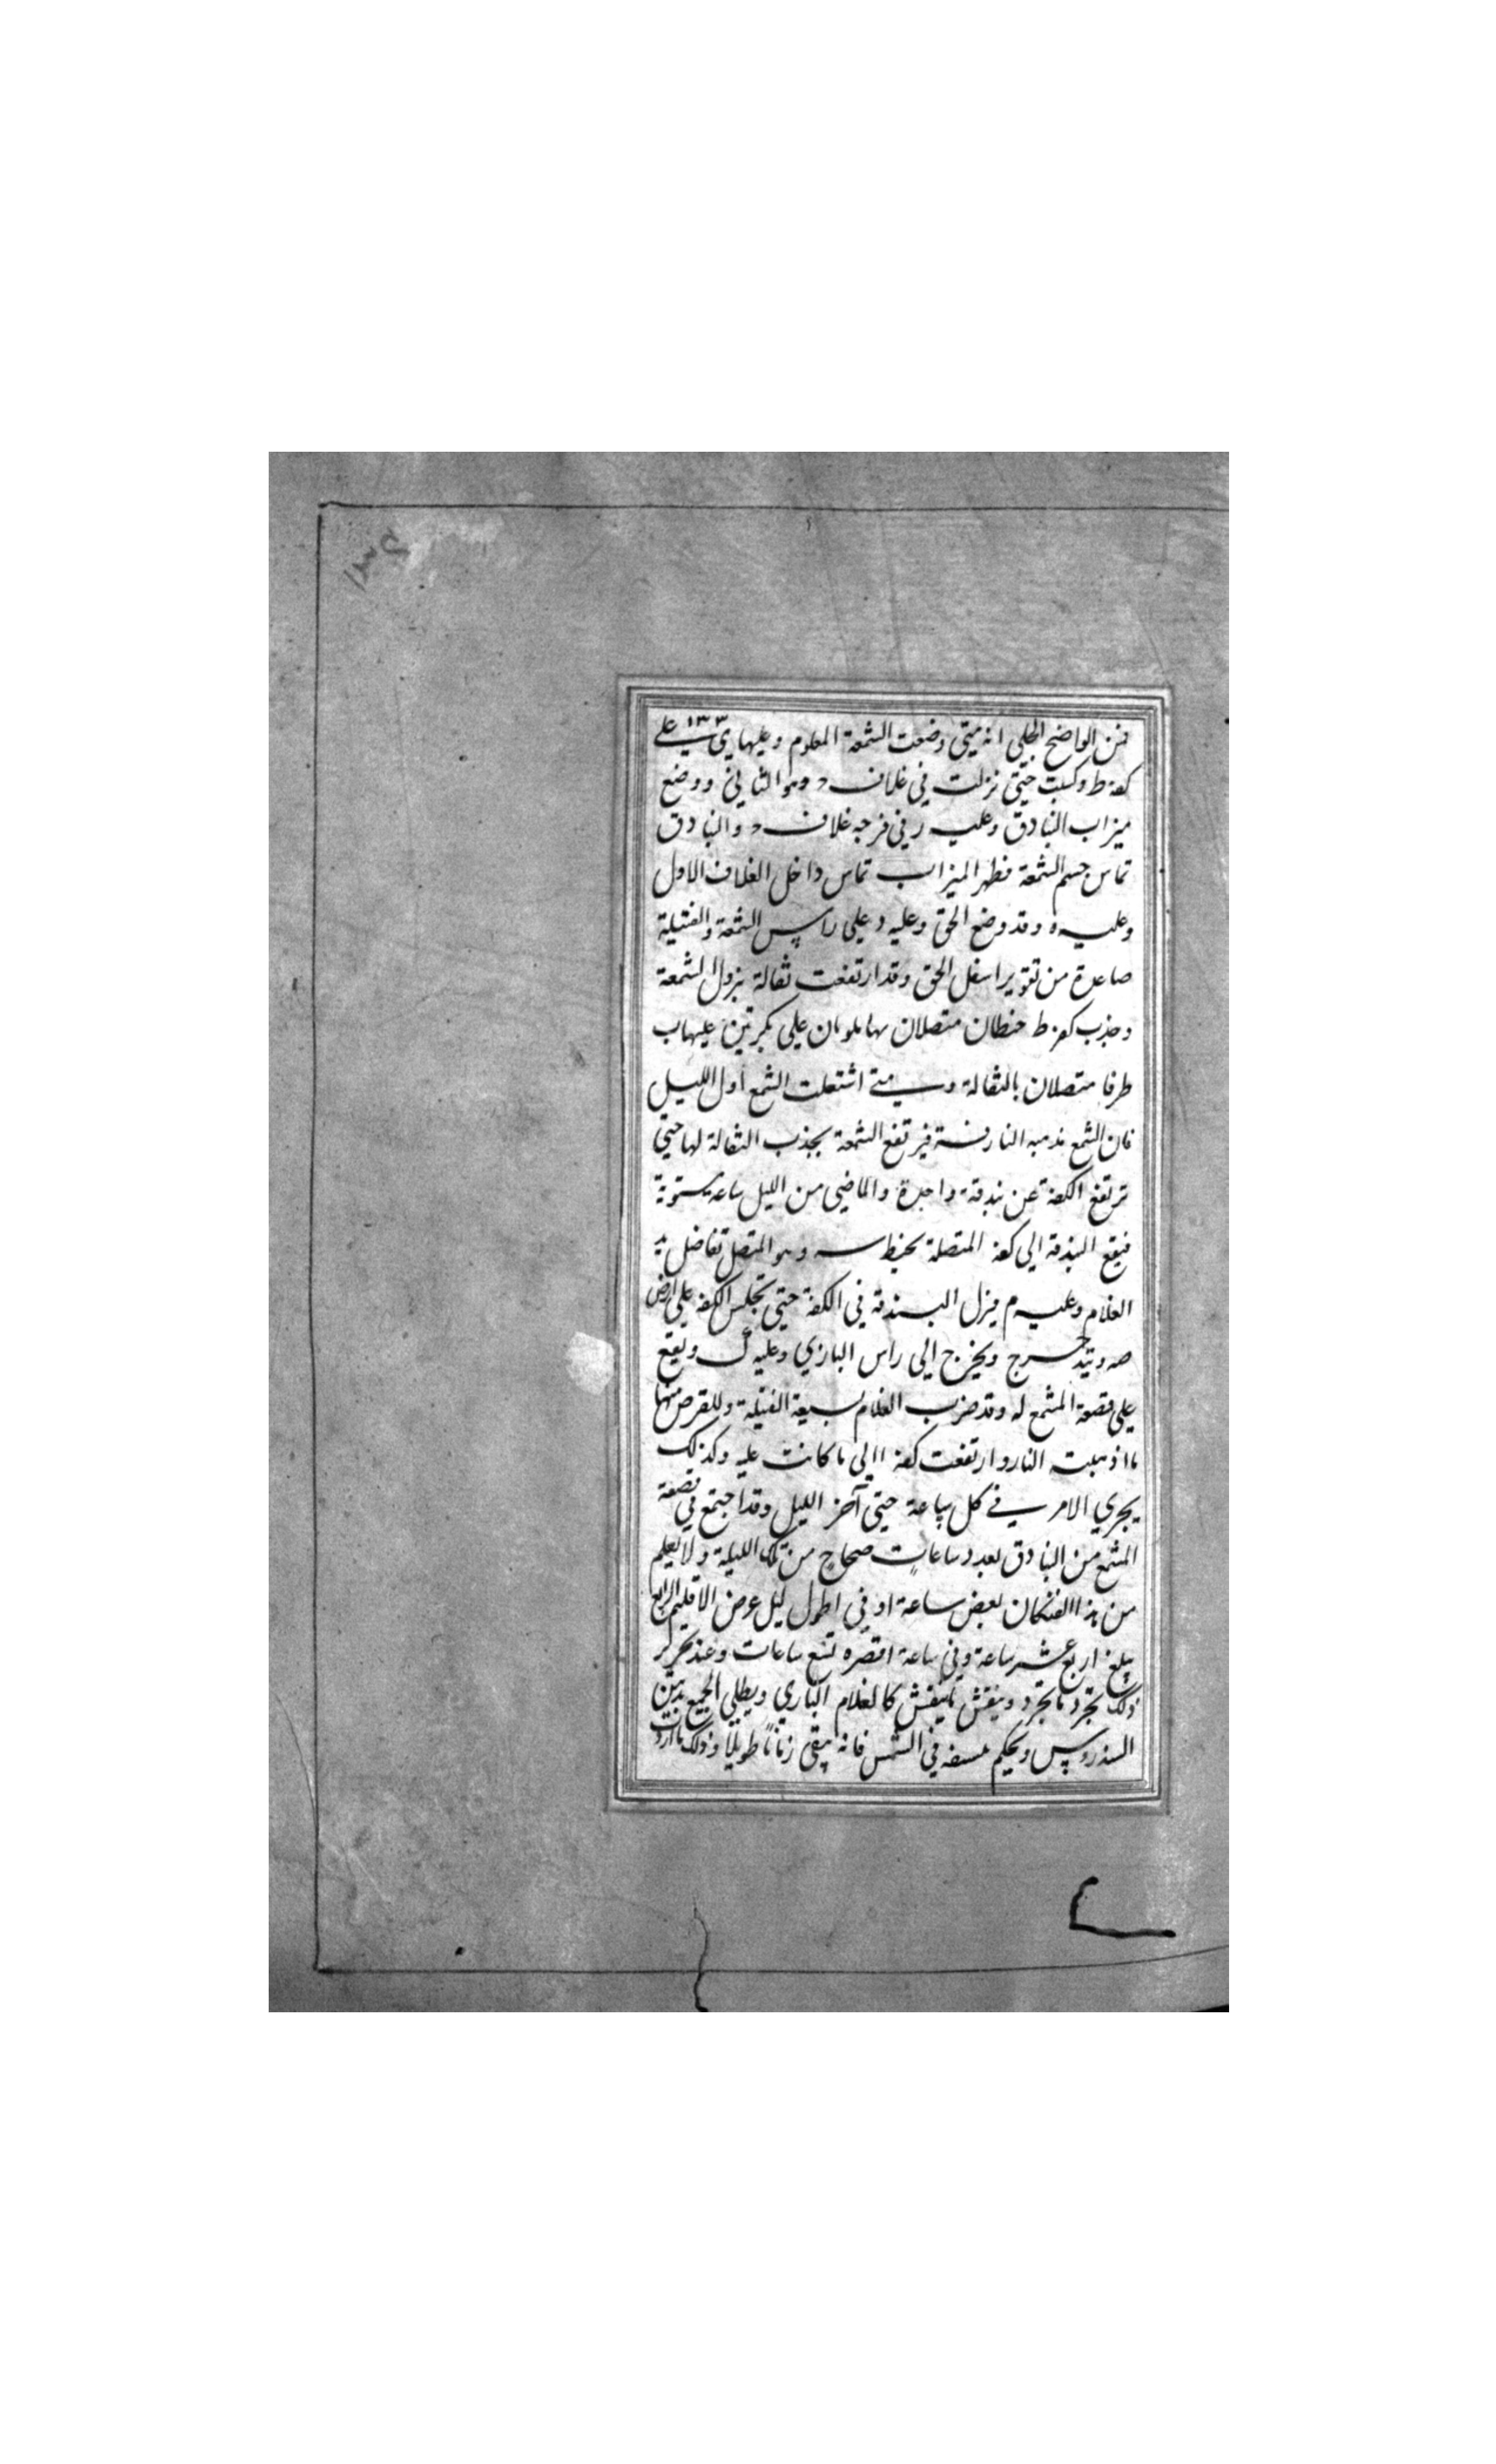 ١٣٣
فمن الواضح الجلي انه متى وضعت الشمعة المعلوم وعليها ى على
كفه ط وكبت حتى نزلت في غلاف د وهو الثاني ووضع
ميزاب البنادق وعليه ر في فرجه غلاف د والبنادق
تماس جسم الشمعة فظهر الميزاب تماس داخل الغلاف الاول
وعليه ه وقد وضع الحق وعليه د على راس الشمعة والفتيلة
صاعدة من تقوير اسفل الحق وقد ارتفعت ثقالة بنزول الشمعة
وجذب كفه ط خيطان متصلان بها ملويان على بكرتين عليها ب
طرفا متصلان بالثقالة ومتى اشتعلت الشمع أول الليل
فان الشمع تذهبه النار فيرتفع الشمعة بجذب الثقالة لها حتى
ترتفع الكفة عن بندقة واحدة والماضي من الليل ساعة مستوية
فيقع البندقة الى كفه المتصلة بخيط س وهو المتصل تفاضل يد
الغلام وعليه م فينزل البندقة في الكفة حتى تجلس الكفه على ارض
ويتدحرج ويخرج الى راس البازي وعليه ك ويقع
على قصعة المشمع له وقد ضرب الغلام بسيفه الفتيلة وللقرص منها
ما اذهبت النار وارتفعت كفه الى ما كانت عليه وكذلك
يجري الامر في كل ساعة حتى آخر الليل وقد اجتمع في قصعة
المشمع من البنادق بعدد ساعات صحاح من تلك الليلة ولا يعلم
من هذا الفنكان بعض ساعة او في اطول ليل عرض الاقليم الرابع
يبلغ اربع عشر ساعة وفي ساعة اقصره تسع ساعات وعند تحرير
ذلك تجرد ما تجرد وينقش ما ينقش كالغلام البازي ويطلى الجميع بدهن
السندروس ويحكم في الشمس فانه يبقى زمانا طويلا وذلك ما اردت